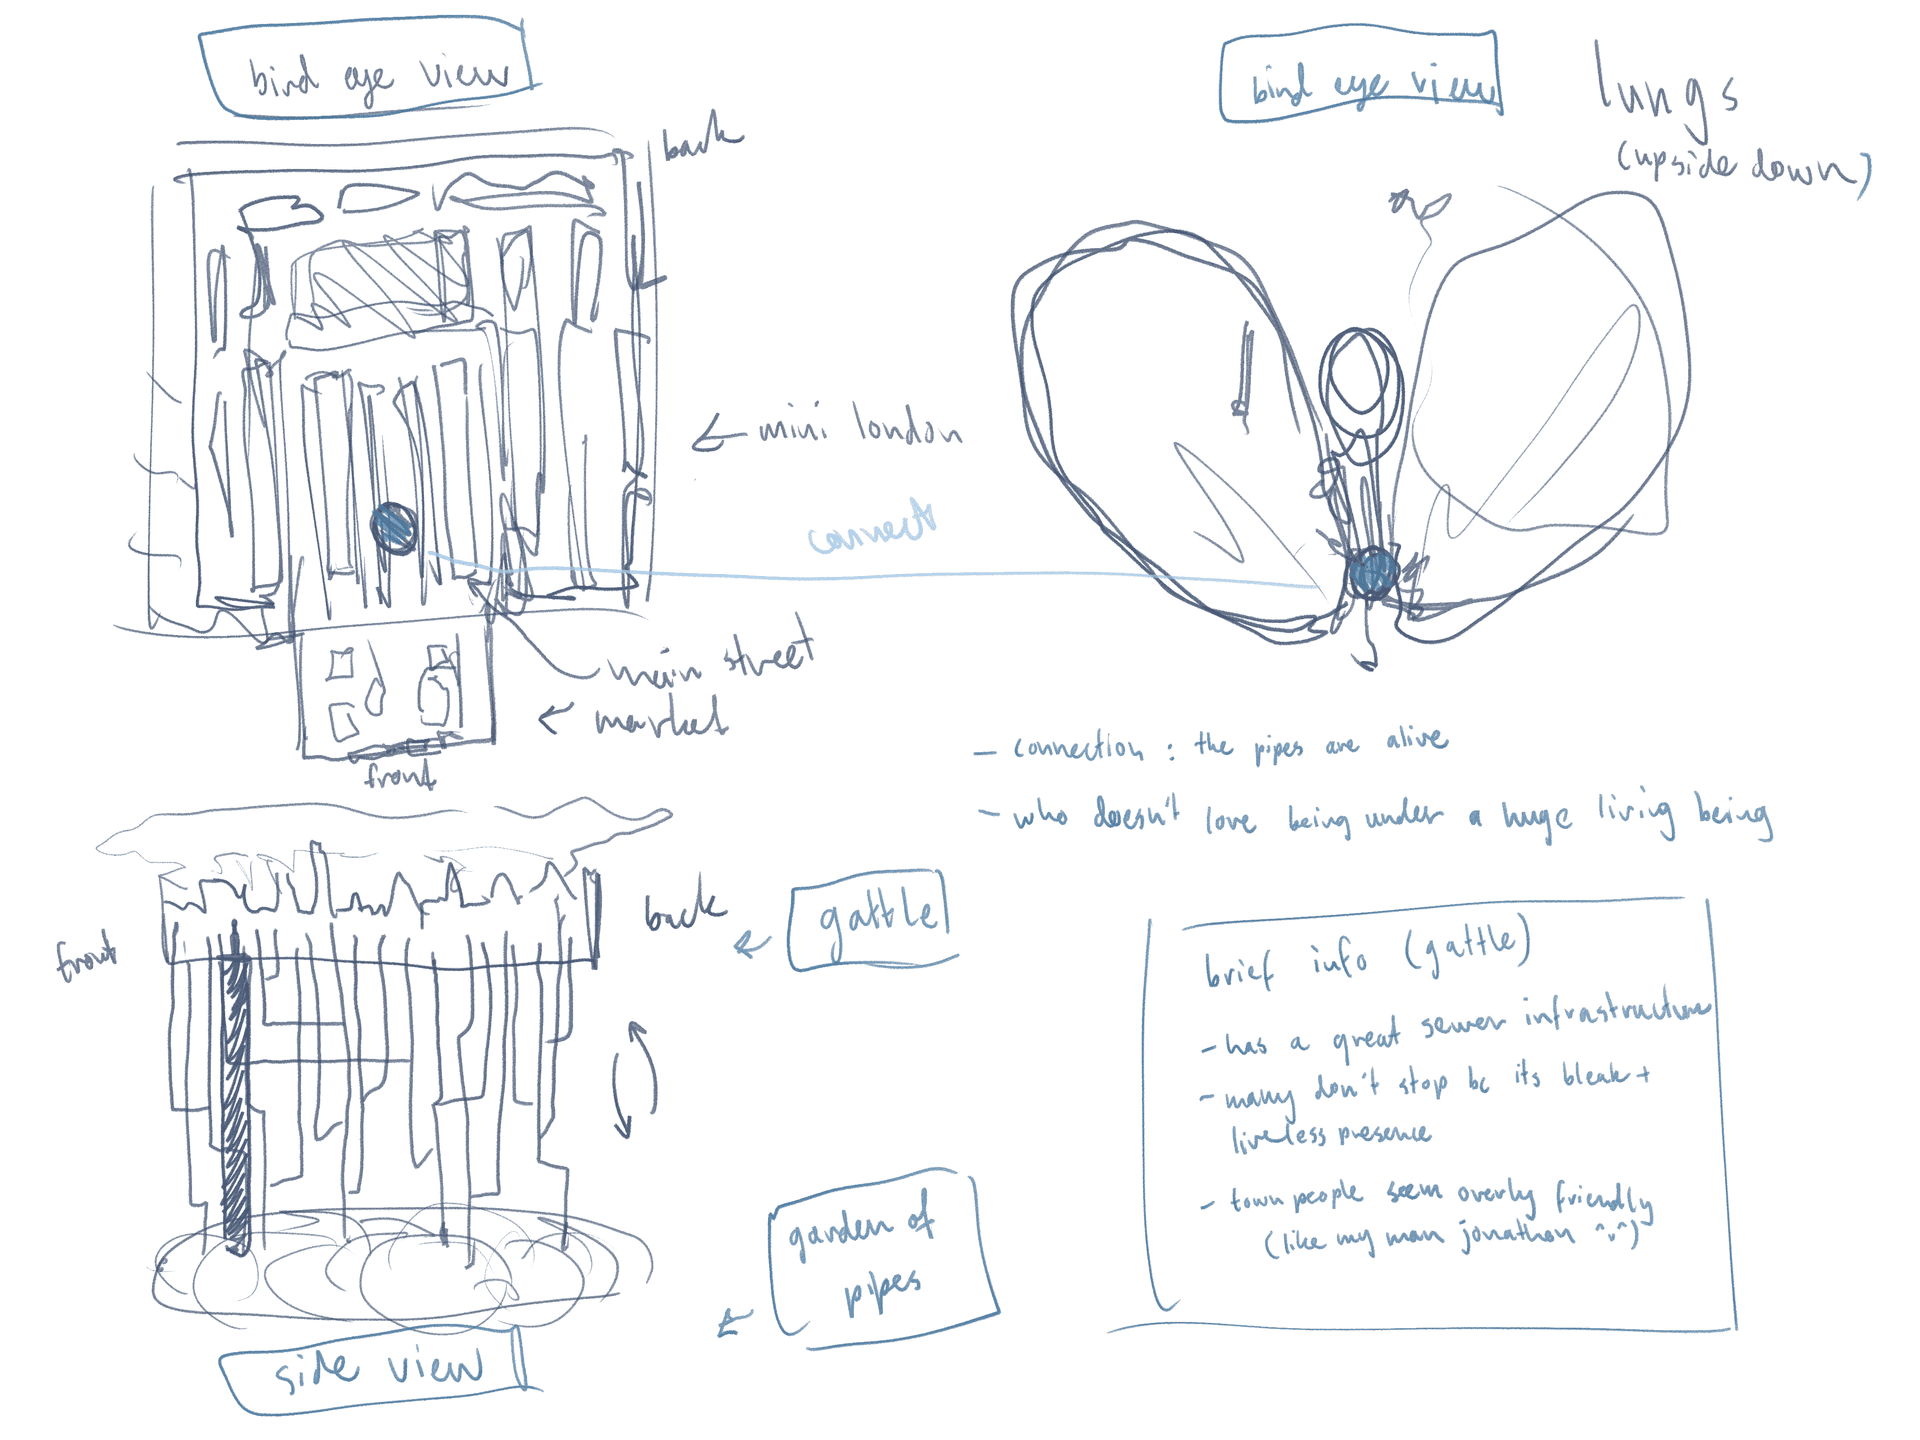 bird eye view
back
← mini london
connect
main street
← market
front
bird eye view
lungs
(upside down)
- connection : the pipes are alive
- who doesn't love being under a huge living being
front
back
← gattle
← garden of
pipes
side view
brief info (gattle)
- has a great sewer infrastructure
- many don't stop bc its bleak +
liveless presence
- town people seem overly friendly
(like my man jonathon ^v^)